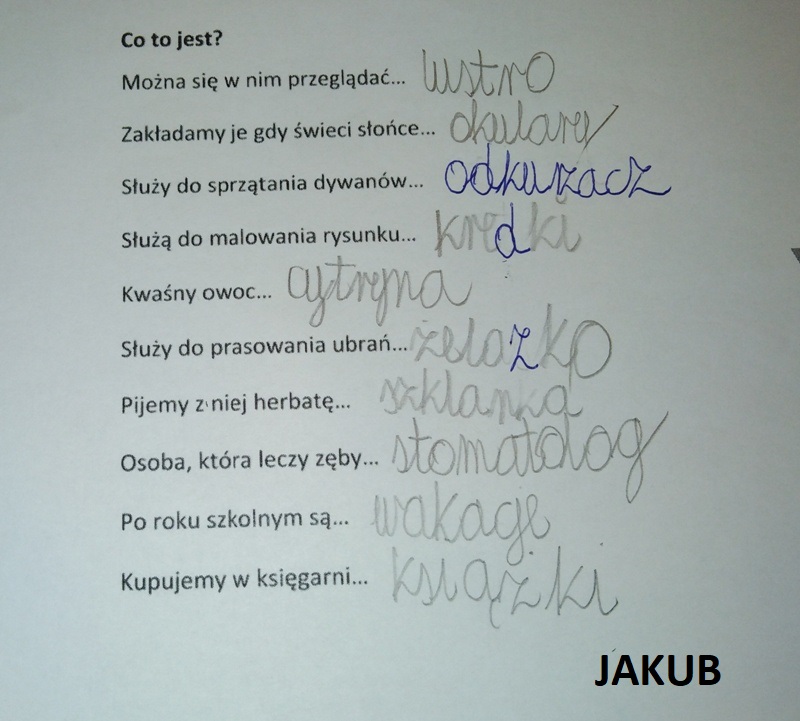 Co to jest?
Można się w nim przeglądać... lustro
Zakładamy je gdy świeci słońce... okulary
Służy do sprzątania dywanów... odkurzacz
Służą do malowania rysunku... kredki
Kwaśny owoc... cytryna
Służy do prasowania ubrań... żelazko
Pijemy z niej herbatę... szklanka
Osoba, która leczy zęby... stomatolog
Po roku szkolnym są... wakacje
Kupujemy w księgarni... książki
JAKUB